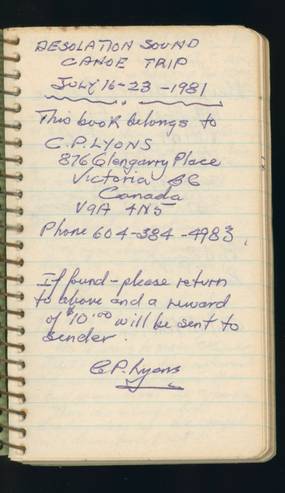 DESOLATION SOUND
CANOE TRIP
JULY 16-23 - 1981
This book belongs to
C.P. LYONS
876 Glengarry Place
Victoria BC
Canada
V9A 4N5
Phone 604-384-4983.
If found - please return
to above and a reward
of $10.00 will be sent to
sender.
C.P. Lyons